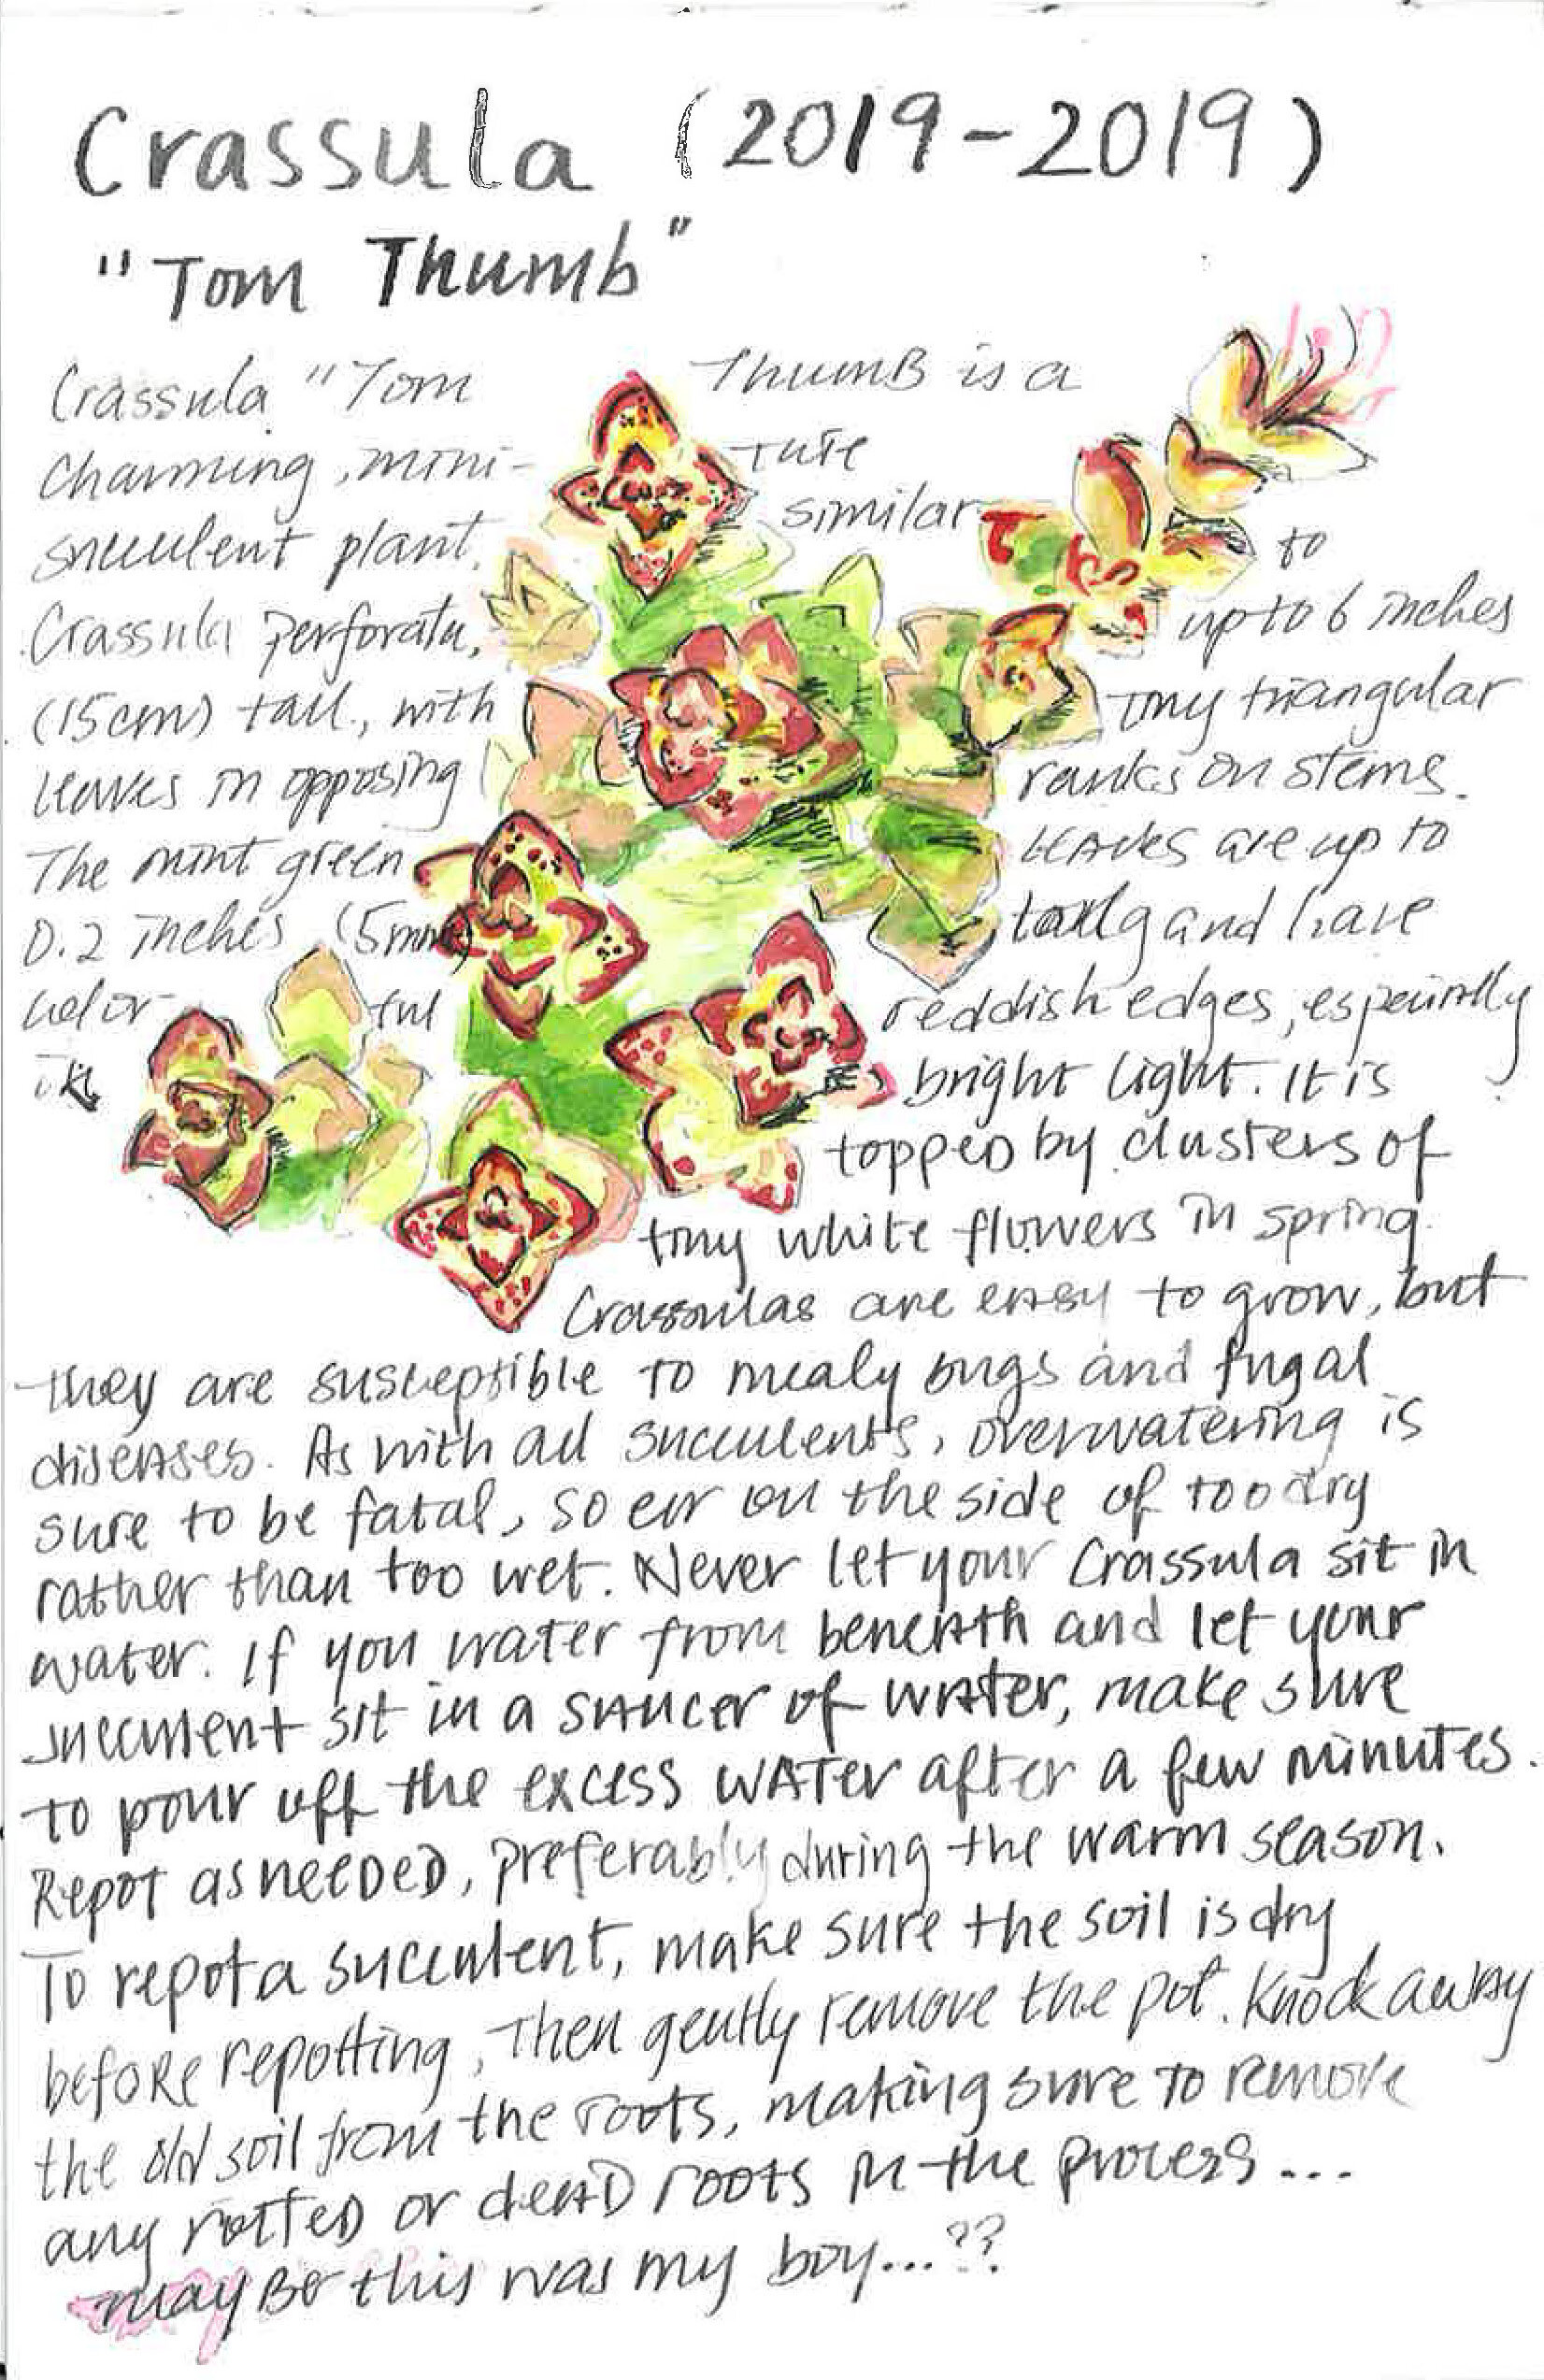 Crassula (2019-2019)
"Tom Thumb"
Crassula "Tom ThumB is a
charming, mini- ture
succulent plant, similar to
Crassula perforata, up to 6 inches
(15cm) tall, with tiny triangular
leaves in opposing ranks on stems.
The mint green leaves are up to
0.2 inches (5mm) long and have
color ful reddish edges, especially
in bright light. It is
topped by clusters of
tiny white flowers in spring.
Crassulas are easy to grow, but
they are susceptible to mealy bugs and fugal
diseases. As with all succulents, overwatering is
sure to be fatal, so err on the side of too dry
rather than too wet. Never let your Crassula sit in
water. If you water from beneath and let your
succulent sit in a saucer of water, make sure
to pour off the excess water after a few minutes.
Repot as needed, preferably during the warm season.
To repot a succulent, make sure the soil is dry
before repotting, Then gently remove the pot. Knock away
the old soil from the roots, making sure to remove
any rotted or dead roots in the process...
mayBe this was my boy...??